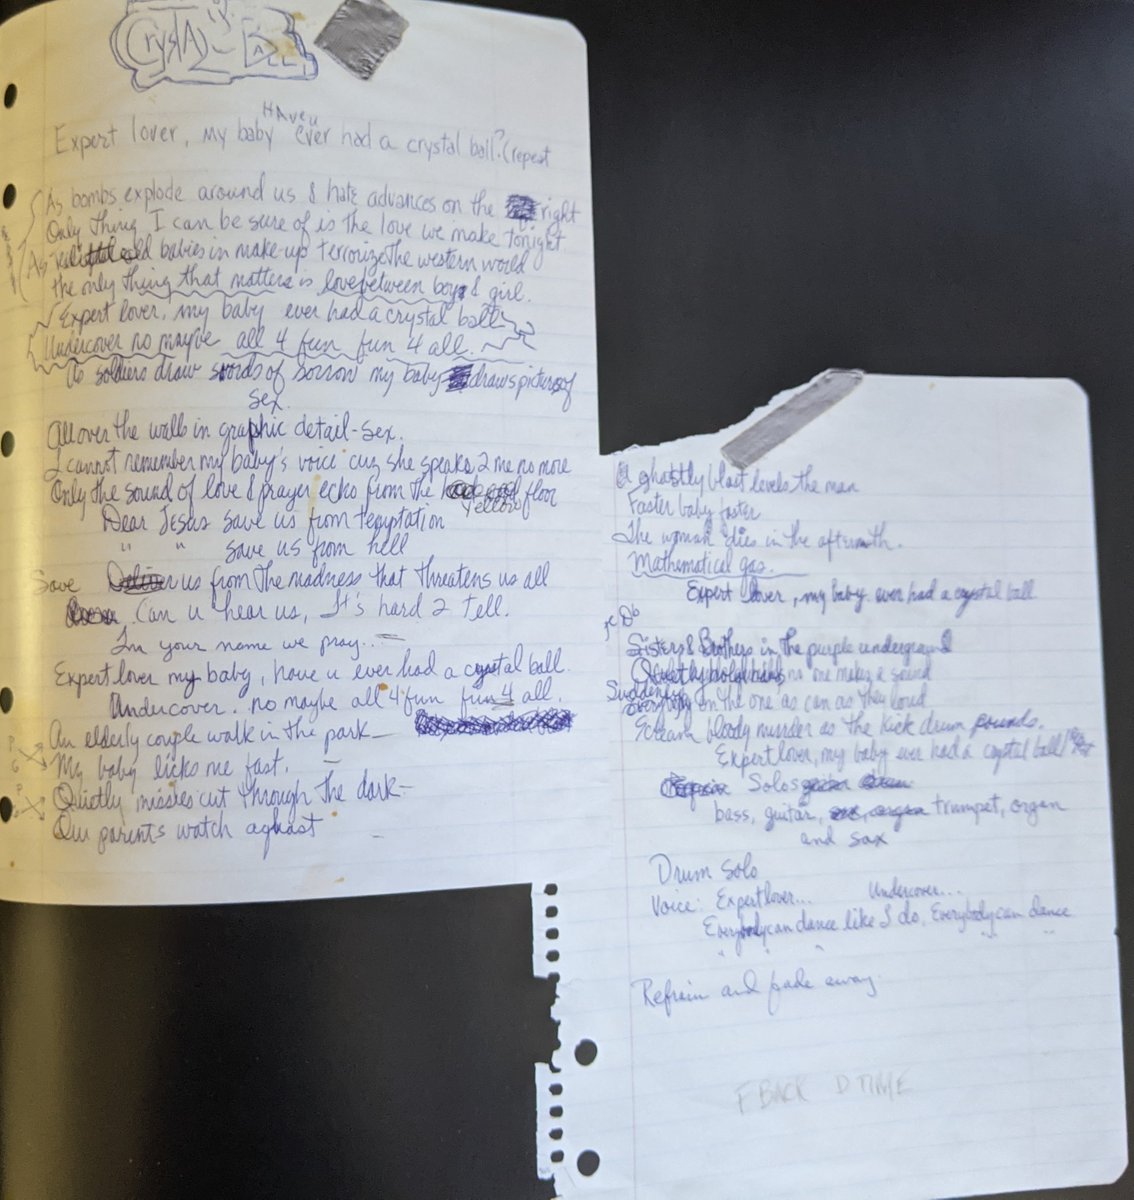 CRYSTAL BALL
HAVE U
Expert lover, my baby ever had a crystal ball? (repeat
As bombs explode around us & hate advances on the right
Only thing I can be sure of is the love we make tonight
As babies in make-up terrorize the western world
the only thing that matters is love between boy & girl.
Expert lover, my baby ever had a crystal ball
Undercover no maybe all 4 fun fun 4 all.
As soldiers draw swords of sorrow my baby draws pictures of
sex.
All over the walls in graphic detail - sex.
I cannot remember my baby's voice cuz she speaks 2 me no more
Only the sound of love & prayer echo from the floor
Yellow
Dear Jesus save us from temptation
" " save us from hell
Save us from the madness that threatens us all
Can u hear us, It's hard 2 tell.
In your name we pray..
Expert lover my baby, have u ever had a crystal ball.
Undercover. no maybe all 4 fun fun 4 all.
An elderly couple walk in the park -
My baby licks me fast.
Quietly missles cut through the dark -
Our parents watch aghast
A ghastly blast levels the man
Faster baby faster
The woman dies in the aftermath.
Mathematical gas.
Expert lover, my baby ever had a crystal ball
Sisters & Brothers in the purple underground
Quietly no one makes a sound
Suddenly
Everybody on the one as can as they loud
Scream bloody murder as the kick drum pounds.
Expert lover, my baby ever had a crystal ball
Solos
bass, guitar, trumpet, organ
and sax
Drum solo
Voice: Expert lover... Undercover...
Everybody can dance like I do, Everybody can dance
" " " " "
Refrain and fade away.
F BACK D TIME